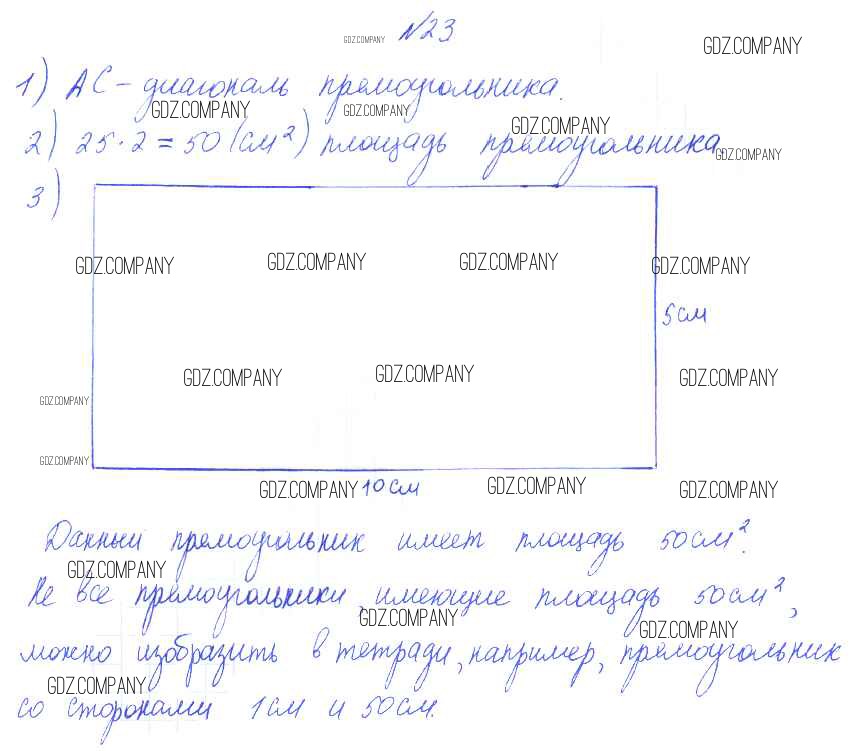 GDZ.COMPANY №23 GDZ.COMPANY
1) АС - диагональ прямоугольника.
GDZ.COMPANY GDZ.COMPANY GDZ.COMPANY
2) 25·2=50 (см²) площадь прямоугольника.
GDZ.COMPANY
3)
GDZ.COMPANY GDZ.COMPANY GDZ.COMPANY GDZ.COMPANY
5см
GDZ.COMPANY GDZ.COMPANY GDZ.COMPANY
GDZ.COMPANY
GDZ.COMPANY
GDZ.COMPANY 10см GDZ.COMPANY GDZ.COMPANY
Данный прямоугольник имеет площадь 50см².
GDZ.COMPANY
Не все прямоугольники, имеющие площадь 50см²,
GDZ.COMPANY GDZ.COMPANY
можно изобразить в тетради, например, прямоугольник
GDZ.COMPANY
со сторонами 1см и 50см.